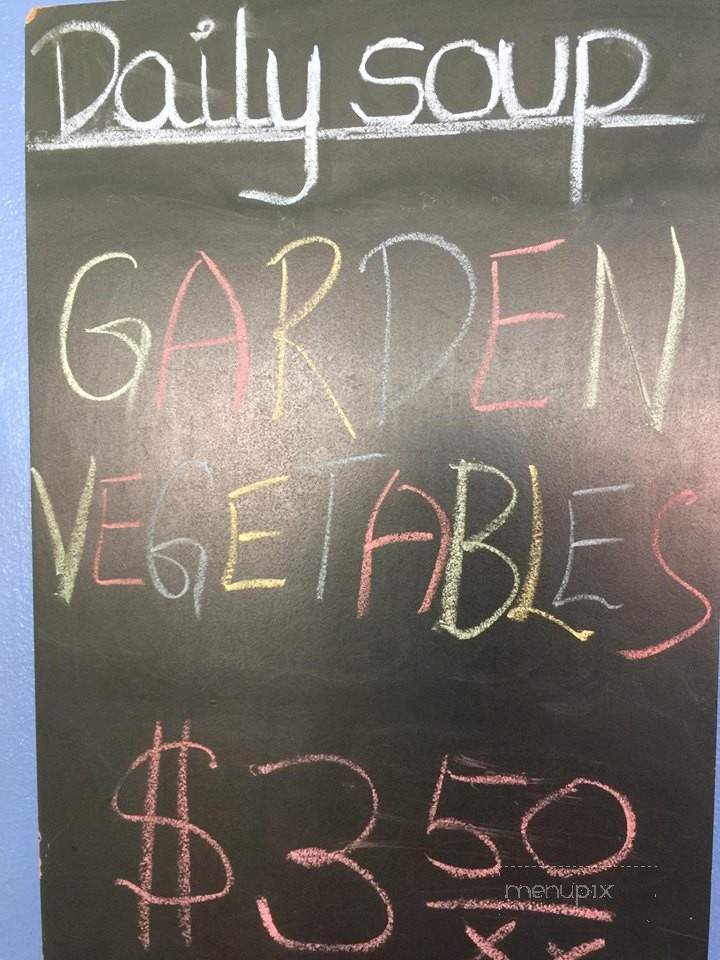 Daily soup
GARDEN
VEGETABLES
$3 50
xx
menupix